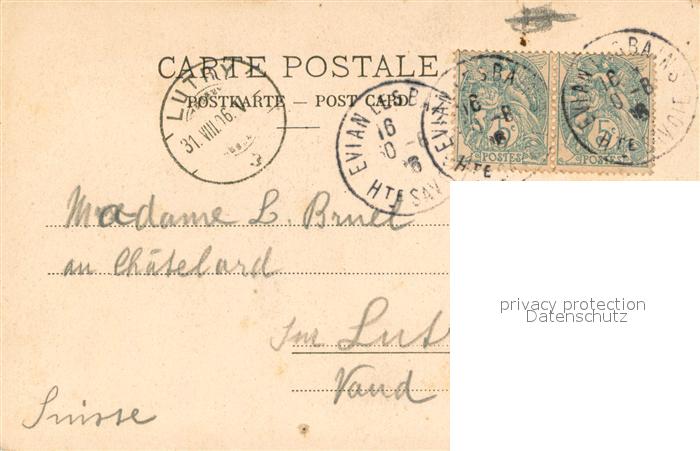 CARTE POSTALE
POSTKARTE — POST CARD
LUTRY
31.VIII.06.V
EVIAN LES BAINS
16
30 -8
06
HTE SAVOIE
5c
POSTES
5c
POSTES
Madame L. Bruel
au Châtelard
sur Lut
Vaud
Suisse
privacy protection
Datenschutz